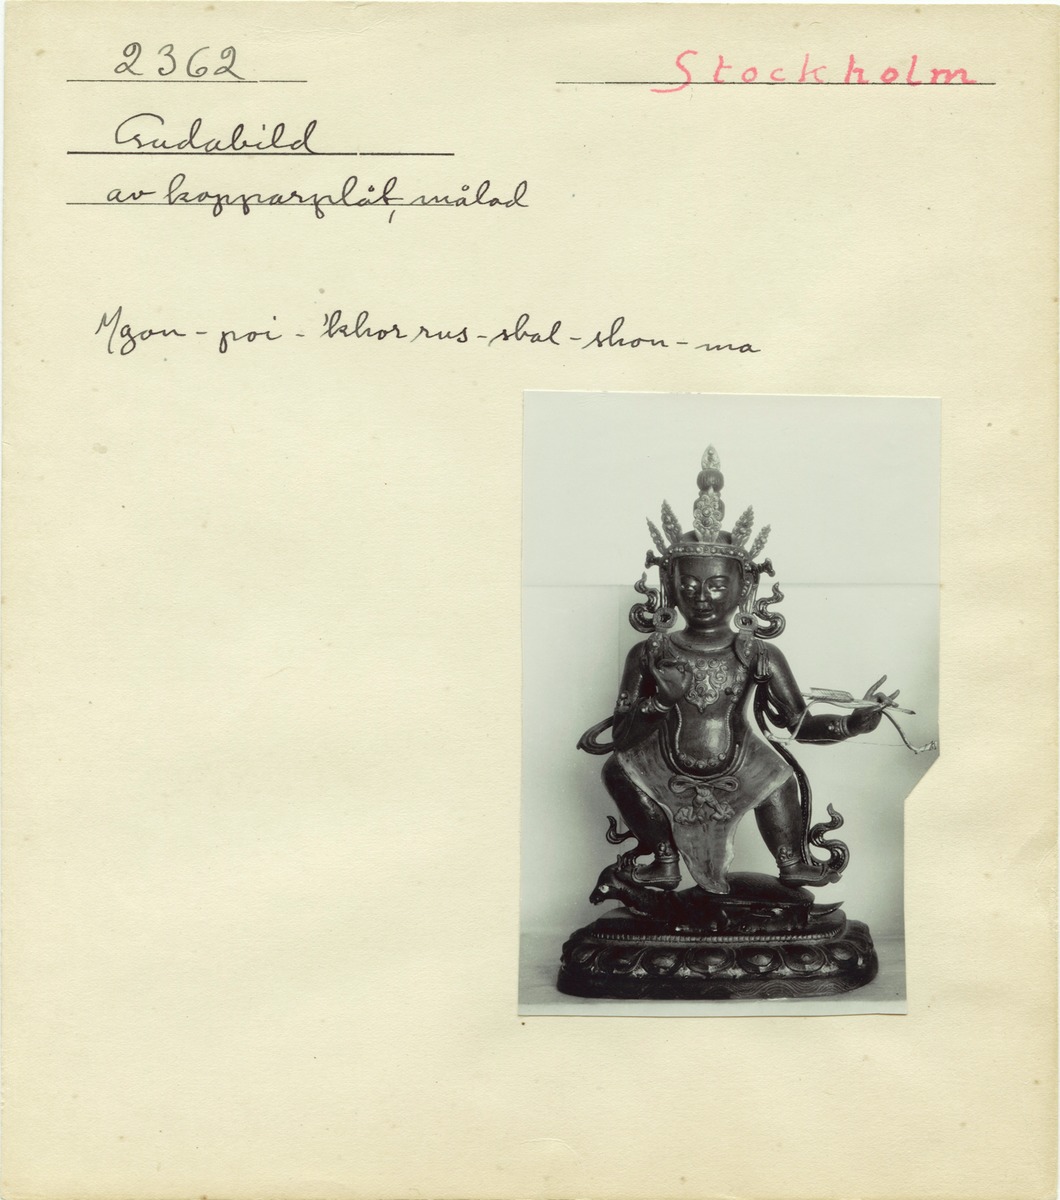 2362
Stockholm
Gudabild
av kopparplåt, målad
Mgon-poi-'khor rus-sbal-shon-ma